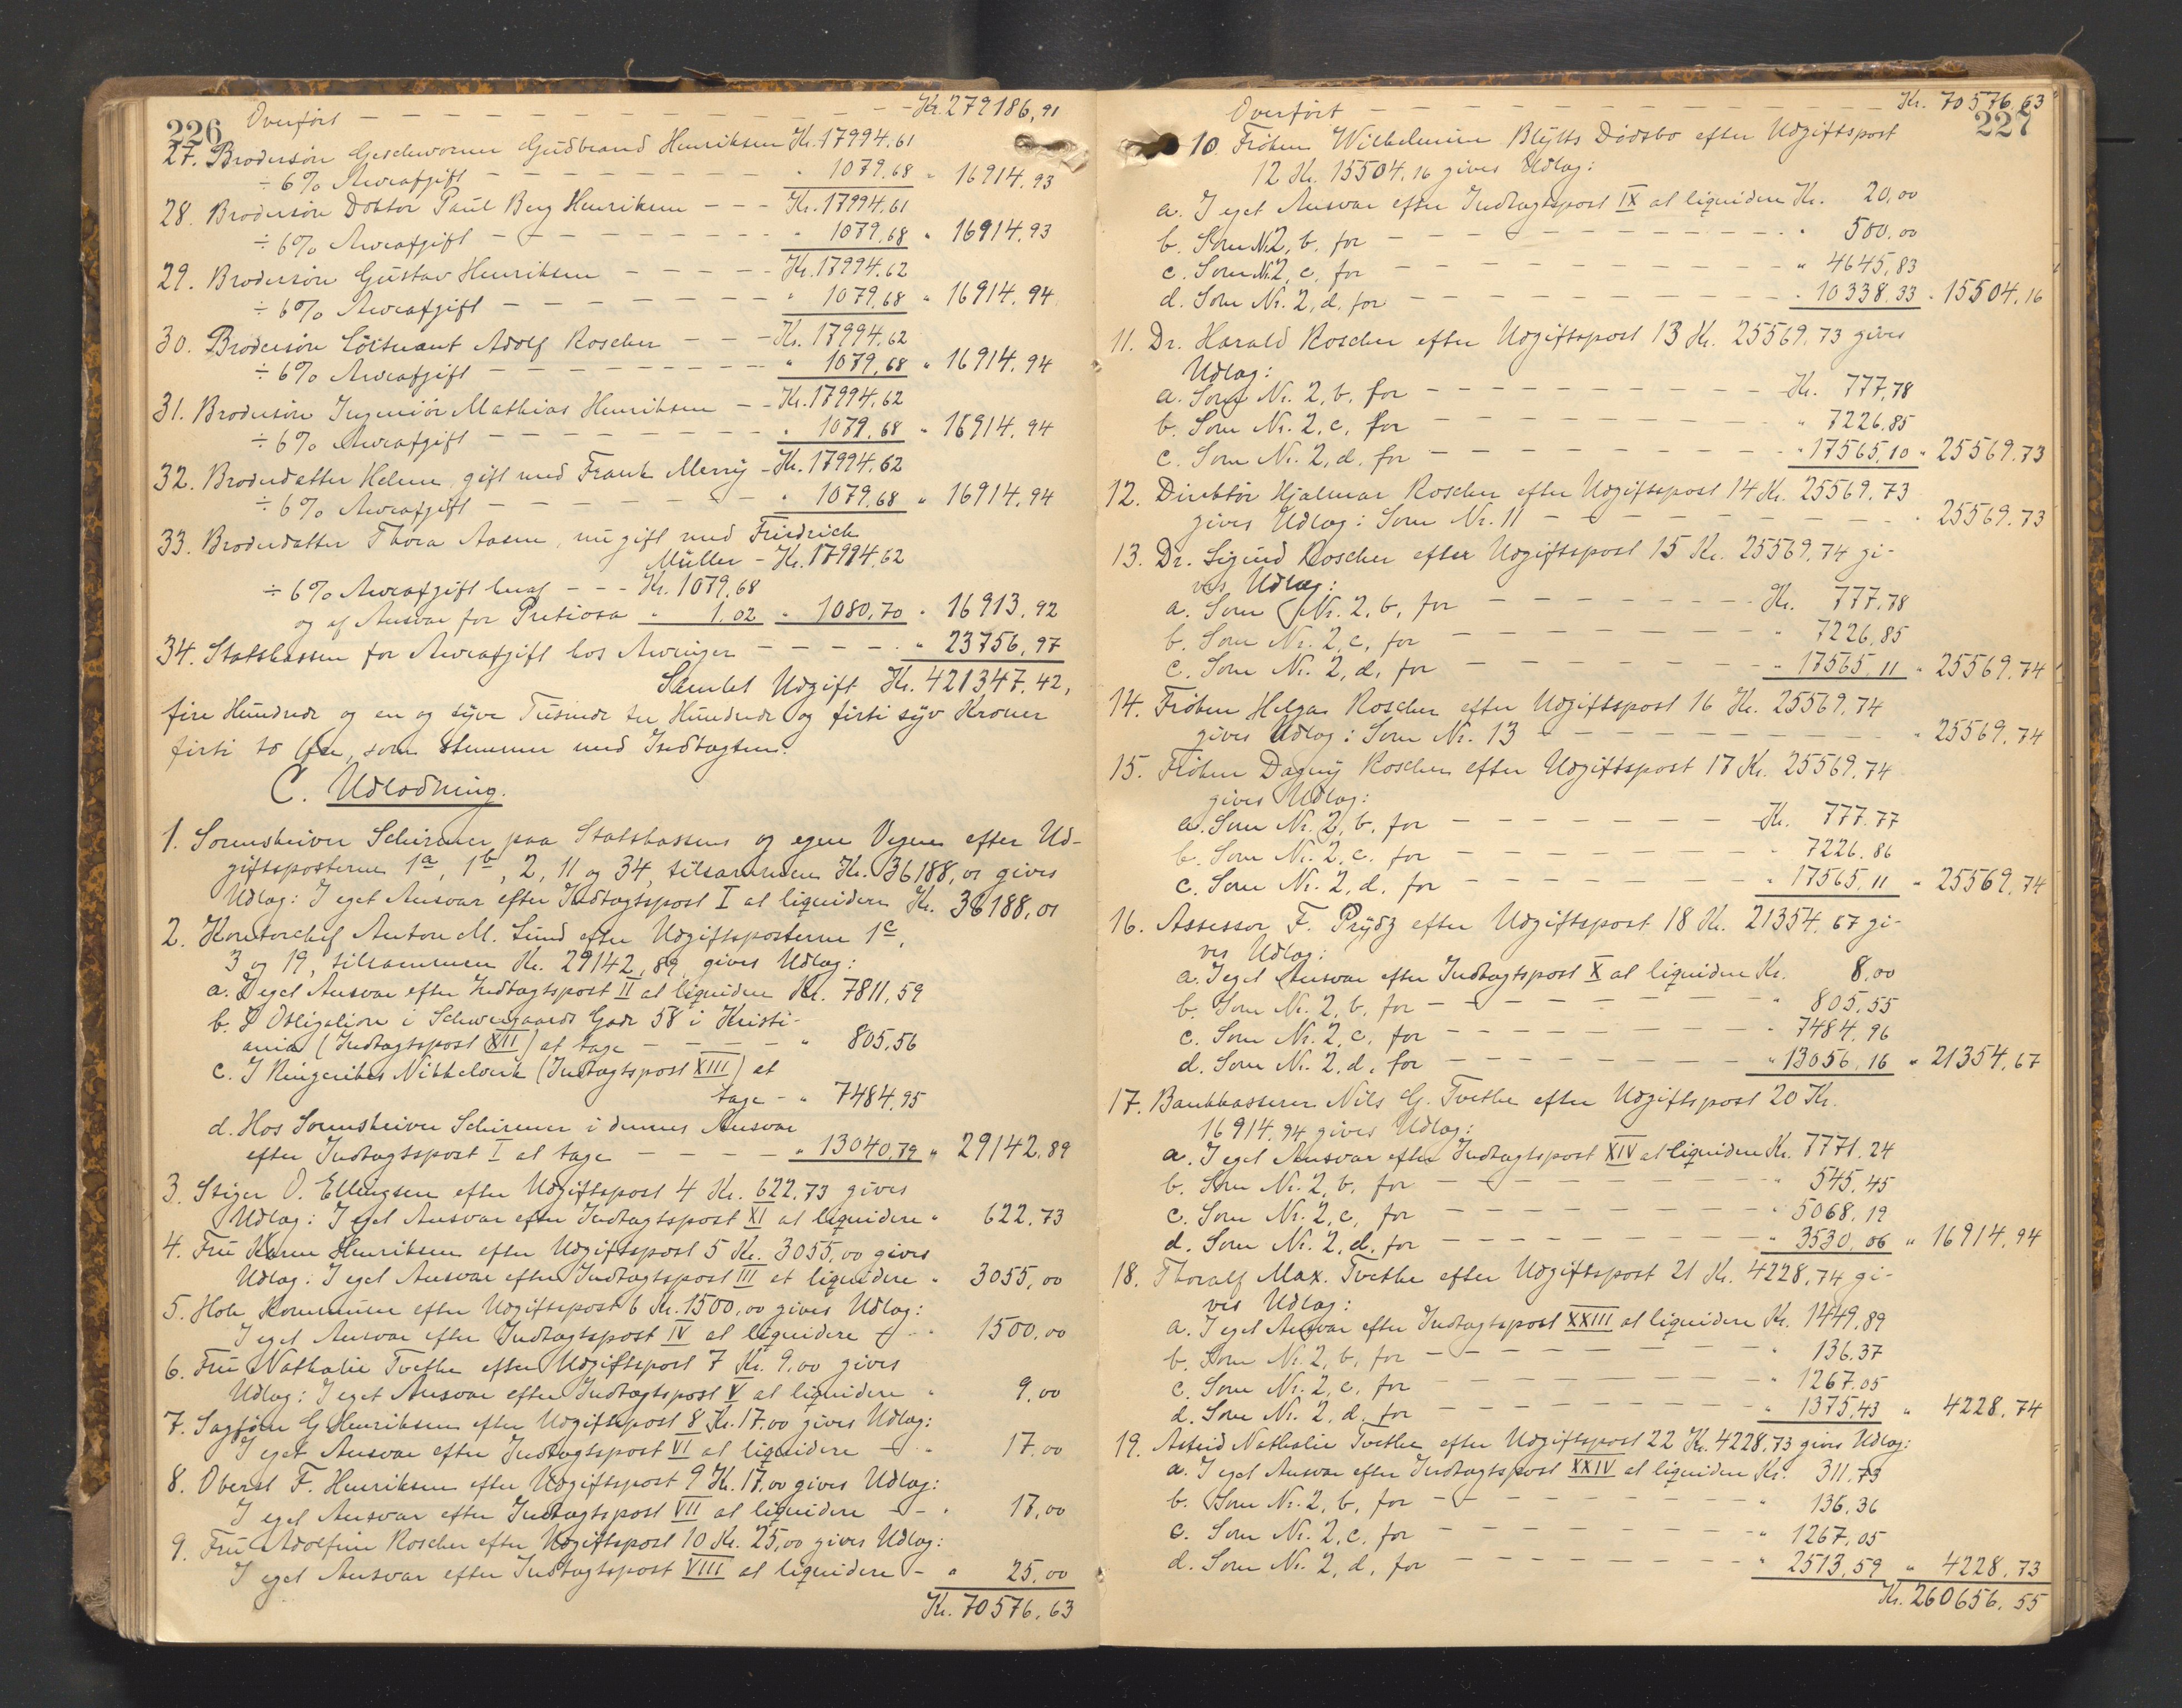 226
Overført - - - - - - - - - Kr. 279186,91
27. Brodersøn Geschworner Gudbrand Henriksen Kr. 17994.61
÷ 6% Arveafgift - - - - - - - - " 1079.68 " 16914.93
28. Brodersøn Doktor Paul Berg Henriksen - - - Kr. 17994.61
÷ 6% Arveafgift - - - - - - - - " 1079.68 " 16914.93
29. Brodersøn Gustav Henriksen - - - - - Kr. 17994.62
÷ 6% Arveafgift - - - - - - - - " 1079.68 " 16914.94
30. Brodersøn Löitnant Adolf Roscher - - - Kr. 17994.62
÷ 6% Arveafgift - - - - - - - - " 1079.68 " 16914.94
31. Brodersøn Ingeniør Mathias Henriksen - - Kr. 17994.62
÷ 6% Arveafgift - - - - - - - - " 1079.68 " 16914.94
32. Broderdatter Helene, gift med Frank Merry - Kr. 17994.62
÷ 6% Arveafgift - - - - - - - - " 1079.68 " 16914.94
33. Broderdatter Thora Aasen, nu gift med Friedrich
Müller - Kr. 17994.62
÷ 6% Arveafgift heraf - - - Kr. 1079.68
og af Ansvar for Pretiosa " 1.02 " 1080.70 " 16913.92
34. Statskassen for Arveafgift hos Arvinger - - - - - " 23756.97
Samlet Udgift Kr. 421347.42,
fire Hundrede og en og tyve Tusinde tre Hundrede og firti syv Kroner
firti to Øre, som stemmer med Indtægten.
C. Udlodning.
1. Sorenskriver Schirmer paa Statskassens og egne Vegne efter Ud-
giftsposterne 1a, 1b, 2, 11 og 34, tilsammen Kr. 36188,01 gives
Udlæg: I eget Ansvar efter Indtægtspost I at liquidere Kr. 36188,01
2. Kontorchef Anton M. Lund efter Udgiftsposterne 1c,
3 og 19, tilsammen Kr. 29142,89 gives Udlæg:
a. I eget Ansvar efter Indtægtspost II at liquidere Kr. 7811,59
b. I Obligation i Schweigaards Gade 58 i Kristi-
ania (Indtægtspost XII) at tage - - - - - " 805,56
c. I Ringerikes Nikkelverk (Indtægtspost XIII) at
tage - " 7484,95
d. Hos Sorenskriver Schirmer i dennes Ansvar
efter Indtægtspost I at tage - - - - - " 13040,79 " 29142.89
3. Stiger O. Ellingsen efter Udgiftspost 4 Kr. 622.73 gives
Udlæg: I eget Ansvar efter Indtægtspost XI at liquidere " 622.73
4. Fru Karen Henriksen efter Udgiftspost 5 Kr. 3055,00 gives
Udlæg: I eget Ansvar efter Indtægtspost III at liquidere " 3055,00
5. Hole Kommune efter Udgiftspost 6 Kr. 1500,00 gives Udlæg:
I eget Ansvar efter Indtægtspost IV at liquidere - - " 1500.00
6. Fru Nathalie Tvethe efter Udgiftspost 7 Kr. 9,00 gives
Udlæg: I eget Ansvar efter Indtægtspost V at liquidere " 9,00
7. Sagfører G Henriksen efter Udgiftspost 8 Kr. 17,00 gives Udlæg:
I eget Ansvar efter Indtægtspost VI at liquidere - - " 17.00
8. Oberst F. Henriksen efter Udgiftspost 9 Kr. 17,00 gives Udlæg:
I eget Ansvar efter Indtægtspost VII at liquidere - - " 17,00
9. Fru Adolfine Roscher efter Udgiftspost 10 Kr. 25,00 gives Udlæg:
I eget Ansvar efter Indtægtspost VIII at liquidere - " 25.00
Kr. 70576.63
227
Overført - - - - - - - - - - Kr. 70576,63
10. Frøken Wilhelmine Blytts Dødsbo efter Udgiftspost
12 Kr. 15504.16 gives Udlæg:
a. I eget Ansvar efter Indtægtspost IX at liquidere Kr. 20,00
b. Som Nr. 2, b, for - - - - - - - - " 500,00
c. Som Nr. 2, c, for - - - - - - - - " 4645,83
d. Som Nr. 2, d, for - - - - - - - - " 10338.33 " 15504,16
11. Dr. Harald Roscher efter Udgiftspost 13 Kr. 25569.73 gives
Udlæg:
a. Som Nr. 2, b, for - - - - - - - - Kr. 777,78
b. Som Nr. 2, c, for - - - - - - - - " 7226.85
c. Som Nr. 2, d, for - - - - - - - - " 17565,10 " 25569.73
12. Direktør Hjalmar Roscher efter Udgiftspost 14 Kr. 25569.73
gives Udlæg: Som Nr. 11 - - - - - - - - " 25569.73
13. Dr. Sigurd Roscher efter Udgiftspost 15 Kr. 25569.74 gi-
ves Udlæg:
a. Som Nr. 2, b, for - - - - - - - - Kr. 777,78
b. Som Nr. 2, c, for - - - - - - - - " 7226,85
c. Som Nr. 2, d, for - - - - - - - - " 17565,11 " 25569.74
14. Frøken Helga Roscher efter Udgiftspost 16 Kr. 25569.74
gives Udlæg: Som Nr. 13 - - - - - - - - " 25569,74
15. Frøken Dagny Roscher efter Udgiftspost 17 Kr. 25569.74
gives Udlæg:
a. Som Nr. 2, b, for - - - - - - - - Kr. 777.77
b. Som Nr. 2, c, for - - - - - - - - " 7226.86
c. Som Nr. 2, d, for - - - - - - - - " 17565,11 " 25569,74
16. Assessor F. Prydz efter Udgiftspost 18 Kr. 21354.67 gi-
ves Udlæg:
a. I eget Ansvar efter Indtægtspost X at liquidere Kr. 8,00
b. Som Nr. 2, b, for - - - - - - - - " 805,55
c. Som Nr. 2, c, for - - - - - - - - " 7484.96
d. Som Nr. 2, d, for - - - - - - - - " 13056,16 " 21354,67
17. Bankkasserer Nils G. Tvethe efter Udgiftspost 20 Kr.
16914.94 gives Udlæg:
a. I eget Ansvar efter Indtægtspost XIV at liquidere Kr. 7771.24
b. Som Nr. 2, b, for - - - - - - - - " 545,45
c. Som Nr. 2, c, for - - - - - - - - " 5068,19
d. Som Nr. 2, d, for - - - - - - - - " 3530,06 " 16914,94
18. Thoralf Max. Tvethe efter Udgiftspost 21 Kr. 4228,74 gi-
ves Udlæg:
a. I eget Ansvar efter Indtægtspost XXIII at liquidere Kr. 1449,89
b. Som Nr. 2, b, for - - - - - - - - " 136.37
c. Som Nr. 2, c, for - - - - - - - - " 1267.05
d. Som Nr. 2, d, for - - - - - - - - " 1375,43 " 4228,74
19. Astrid Nathalie Tvethe efter Udgiftspost 22 Kr. 4228,73 gives Udlæg:
a. I eget Ansvar efter Indtægtspost XXIV at liquidere Kr. 311,73
b. Som Nr. 2, b, for - - - - - - - - " 136,36
c. Som Nr. 2, c, for - - - - - - - - " 1267,05
d. Som Nr. 2, d, for - - - - - - - - " 2513,59 " 4228,73
Kr. 260656.55